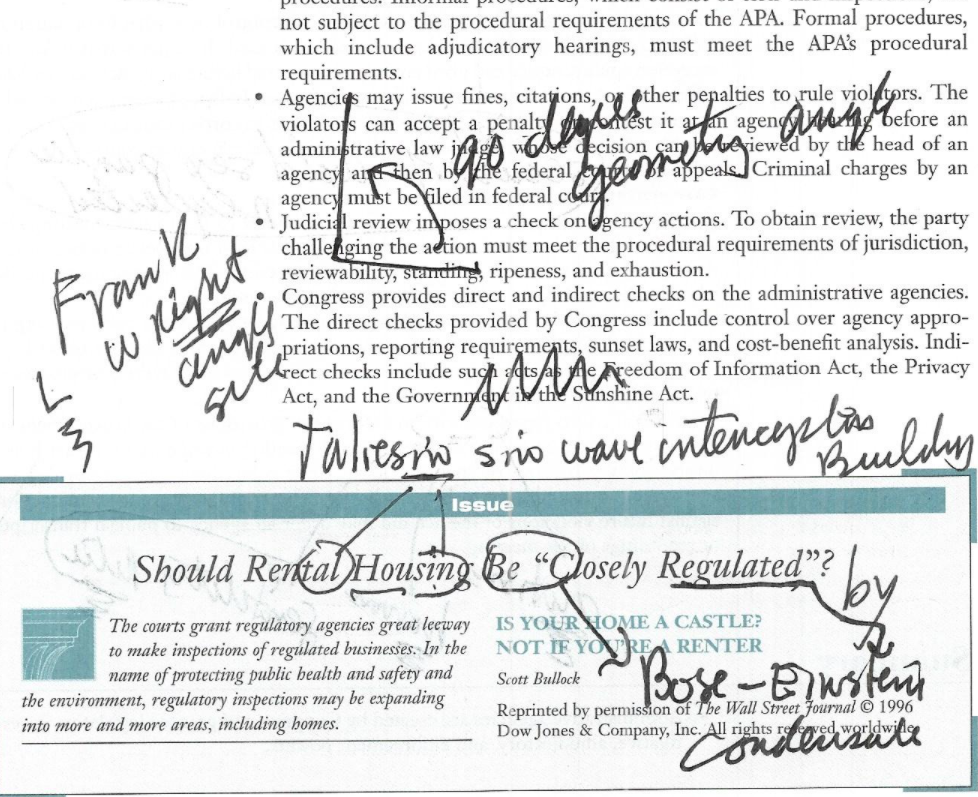 not subject to the procedural requirements of the APA. Formal procedures,
which include adjudicatory hearings, must meet the APA's procedural
requirements.
• Agencies may issue fines, citations, or other penalties to rule violators. The
violators can accept a penalty or contest it at an agency hearing before an
administrative law judge, whose decision can be reviewed by the head of an
agency and then by the federal courts of appeals. Criminal charges by an
agency must be filed in federal court.
90 degrees
geometry angle
• Judicial review imposes a check on agency actions. To obtain review, the party
challenging the action must meet the procedural requirements of jurisdiction,
reviewability, standing, ripeness, and exhaustion.
• Congress provides direct and indirect checks on the administrative agencies.
The direct checks provided by Congress include control over agency appro-
priations, reporting requirements, sunset laws, and cost-benefit analysis. Indi-
rect checks include such acts as the Freedom of Information Act, the Privacy
Act, and the Government in the Sunshine Act.
Frank
L
Wright
angle
Taliesin sin wave
Building
Issue
Should Rental Housing Be "Closely Regulated"?
by
The courts grant regulatory agencies great leeway
to make inspections of regulated businesses. In the
name of protecting public health and safety and
the environment, regulatory inspections may be expanding
into more and more areas, including homes.
IS YOUR HOME A CASTLE?
NOT IF YOU'RE A RENTER
Scott Bullock
Bose-Einstein
Condensate
Reprinted by permission of The Wall Street Journal © 1996
Dow Jones & Company, Inc. All rights reserved worldwide.